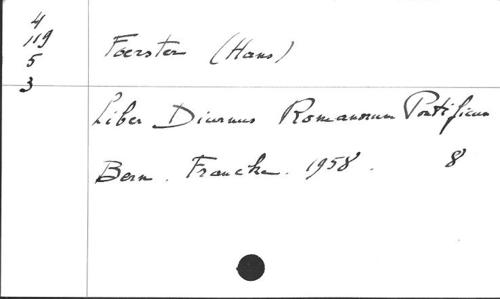 4
119
5
3
Foerster (Hans)
Liber Diurnus Romanorum Pontificum
Bern. Francke. 1958. 8